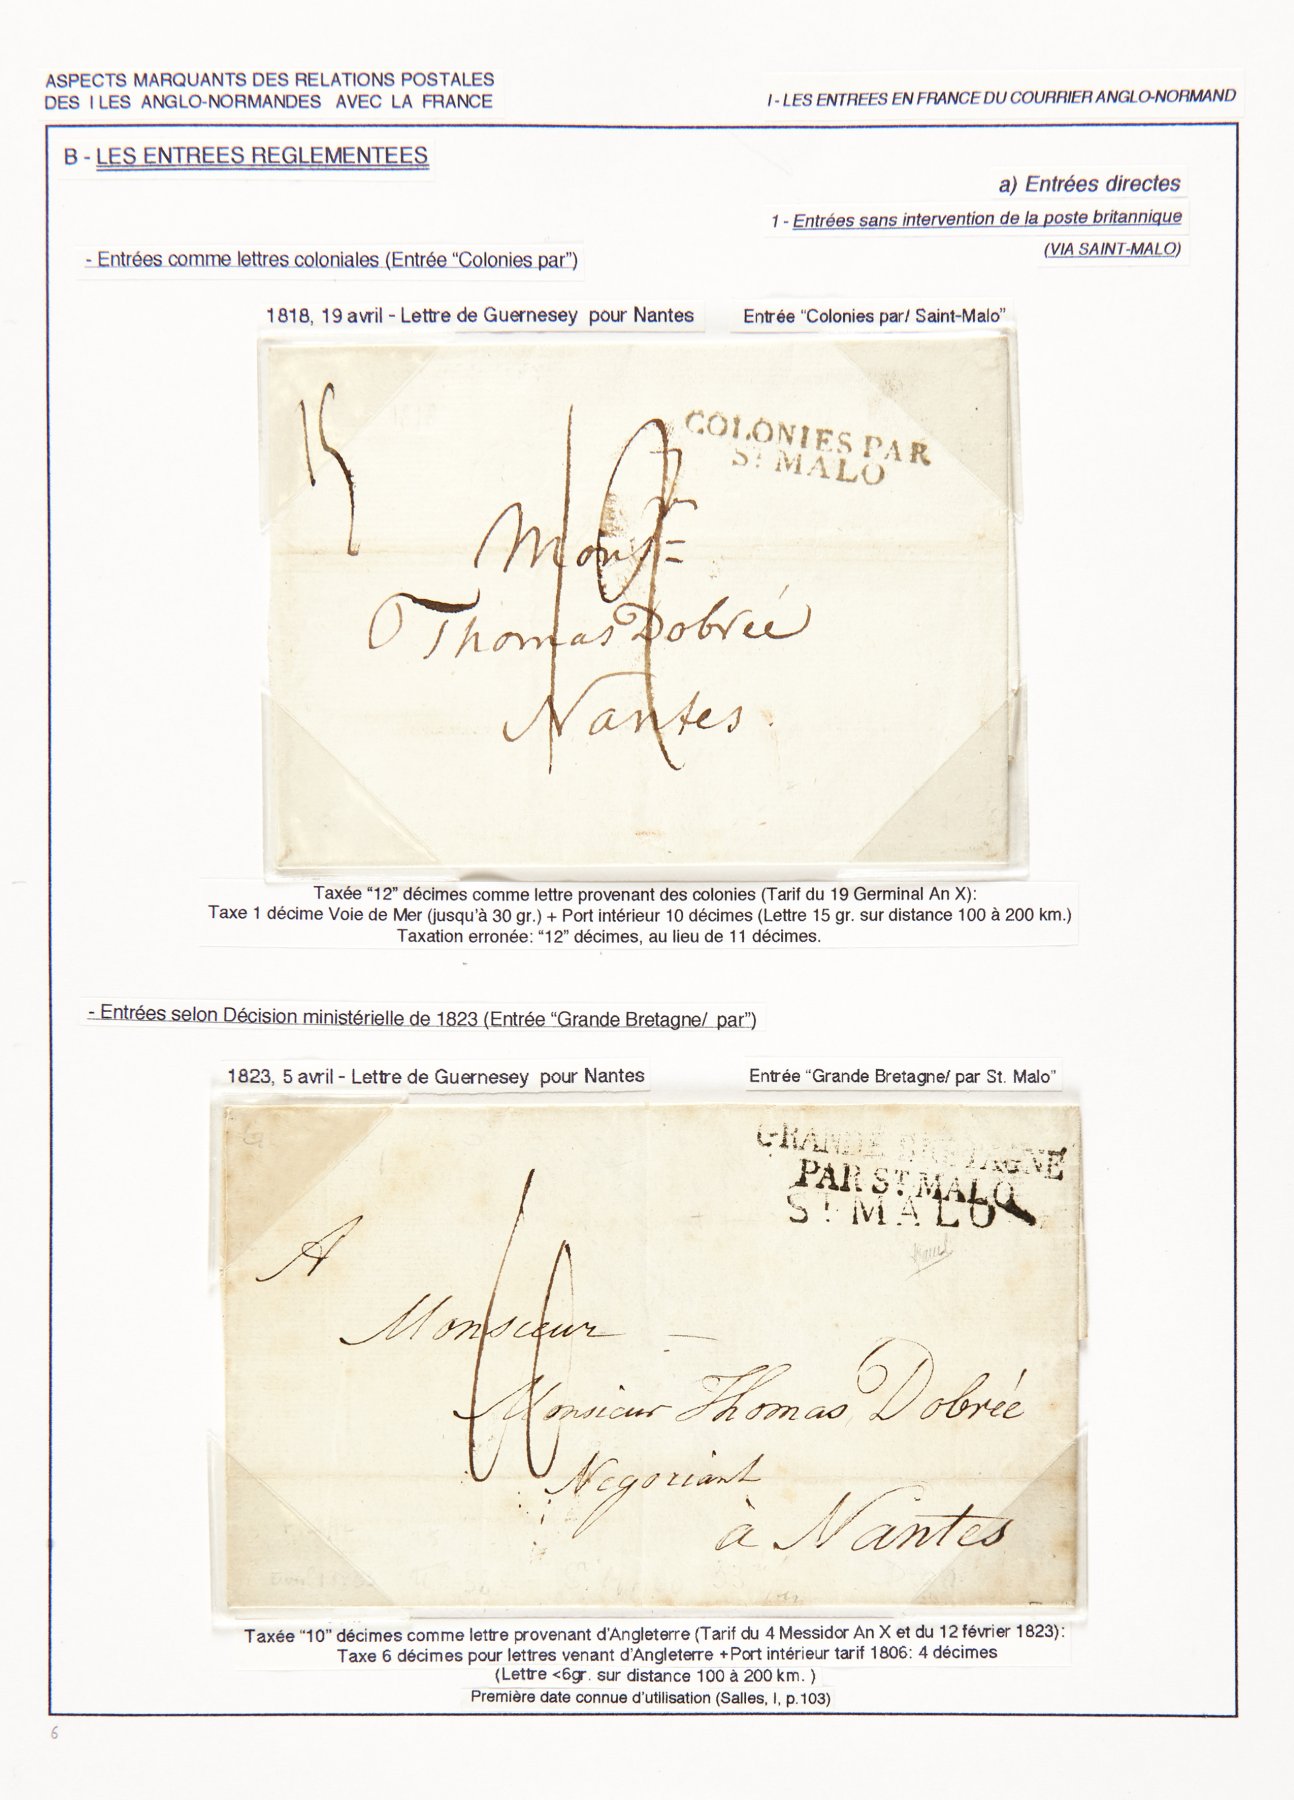 ASPECTS MARQUANTS DES RELATIONS POSTALES
DES ILES ANGLO-NORMANDES AVEC LA FRANCE
I - LES ENTREES EN FRANCE DU COURRIER ANGLO-NORMAND
B - LES ENTREES REGLEMENTEES
a) Entrées directes
1 - Entrées sans intervention de la poste britannique
(VIA SAINT-MALO)
- Entrées comme lettres coloniales (Entrée “Colonies par”)
1818, 19 avril - Lettre de Guernesey pour Nantes
Entrée “Colonies par/ Saint-Malo”
15
COLONIES PAR
ST MALO
12
Monsr
Thomas Dobrée
Nantes
Taxée “12” décimes comme lettre provenant des colonies (Tarif du 19 Germinal An X):
Taxe 1 décime Voie de Mer (jusqu'à 30 gr.) + Port intérieur 10 décimes (Lettre 15 gr. sur distance 100 à 200 km.)
Taxation erronée: “12” décimes, au lieu de 11 décimes.
- Entrées selon Décision ministérielle de 1823 (Entrée “Grande Bretagne/ par”)
1823, 5 avril - Lettre de Guernesey pour Nantes
Entrée “Grande Bretagne/ par St. Malo”
GRANDE BRETAGNE
PAR ST. MALO
ST MALO
10
A
Monsieur
Monsieur Thomas Dobrée
Negociant
à Nantes
Taxée “10” décimes comme lettre provenant d'Angleterre (Tarif du 4 Messidor An X et du 12 février 1823):
Taxe 6 décimes pour lettres venant d'Angleterre +Port intérieur tarif 1806: 4 décimes
(Lettre <6gr. sur distance 100 à 200 km. )
Première date connue d'utilisation (Salles, I, p.103)
6